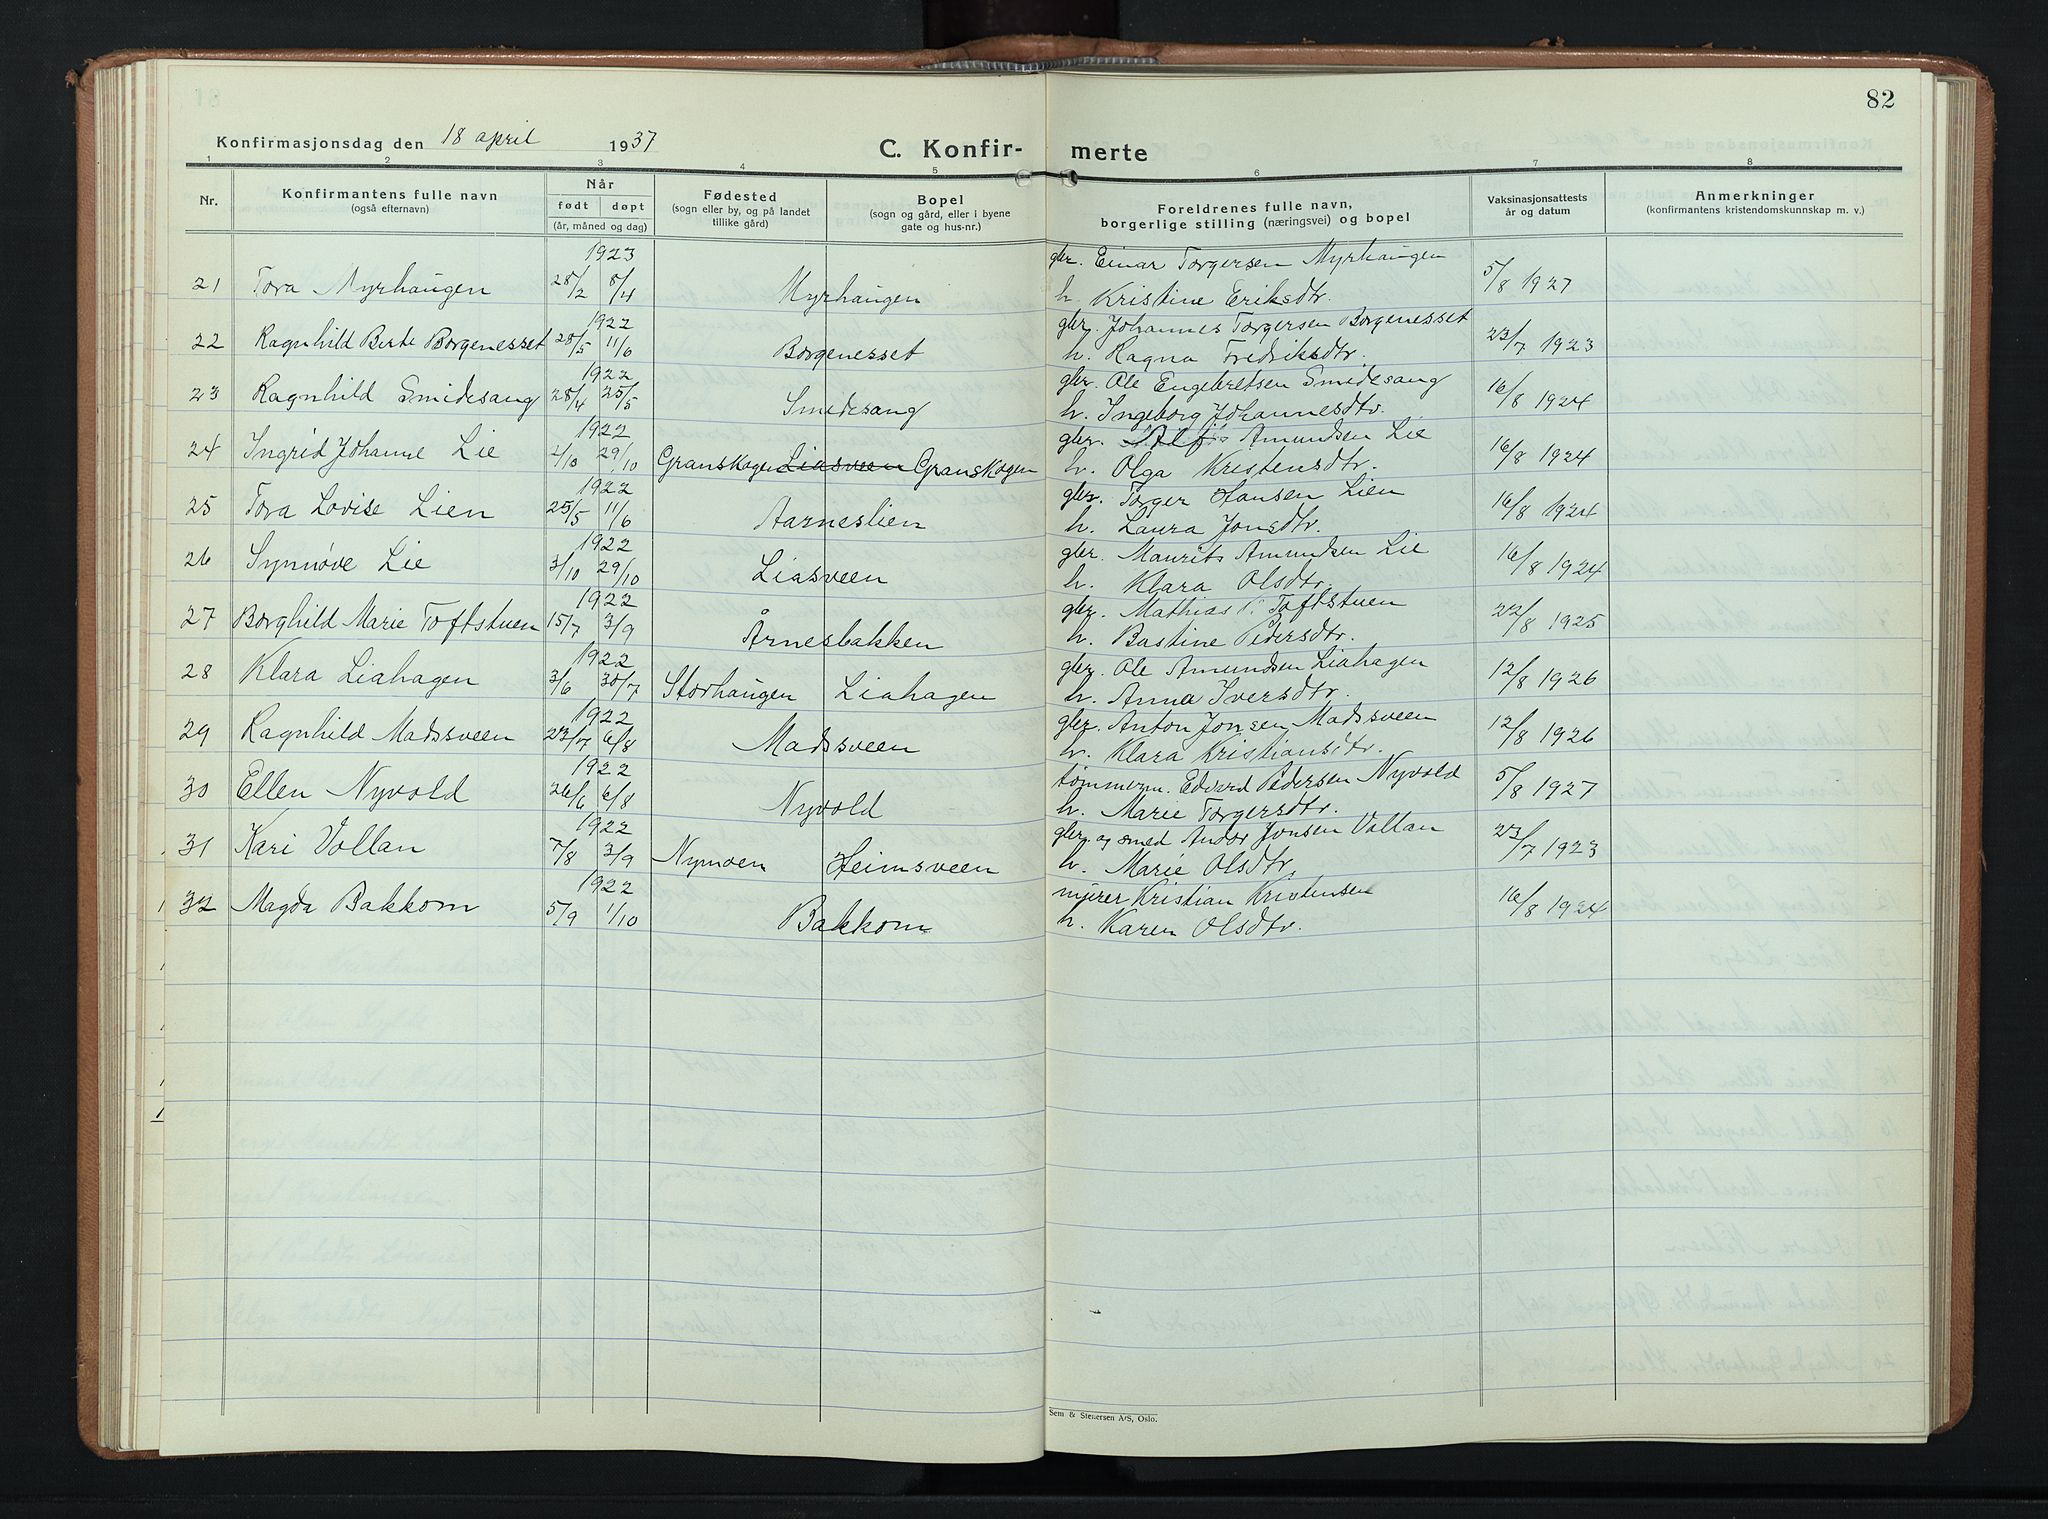 82
Konfirmasjonsdag den 18 april 1937
C. Konfir- merte
1 2 3 4 5 6 7 8
Nr. Konfirmantens fulle navn (også efternavn) Når født døpt (år, måned og dag) Fødested (sogn eller by, og på landet tillike gård) Bopel (sogn og gård, eller i byene gate og hus-nr.) Foreldrenes fulle navn, borgerlige stilling (næringsvei) og bopel Vaksinasjonsattests år og datum Anmerkninger (konfirmantens kristendomskunnskap m. v.)
1923 gbr. Einar Torgersen Myrhaugen
21 Tora Myrhaugen 28/2 8/4 Myrhaugen h. Kristine Eriksdtr. 5/8 1927
1922 gbr. Johannes Torgersen Borgenesset
22 Ragnhild Berte Borgenesset 28/5 11/6 Borgenesset h. Ragna Fredriksdtr. 23/7 1923
1922 gbr. Ole Engebretsen Smidesang
23 Ragnhild Smidesang 28/4 25/5 Smidesang h. Ingeborg Johannesdtr. 16/8 1924
1922 gbr. Alf Amundsen Lie
24 Ingrid Johanne Lie 2/10 29/10 Granskogen Liasveen Granskogen h. Olga Kristensdtr. 16/8 1924
1922 gbr. Torger Hansen Lien
25 Tora Lovise Lien 25/5 11/6 Aarneslien h. Laura Jonsdtr. 16/8 1924
1922 gbr. Maurits Amundsen Lie
26 Synnøve Lie 3/10 29/10 Liasveen h. Klara Olsdtr. 16/8 1924
1922 gbr. Mathias P. Toftstuen
27 Borghild Marie Toftstuen 15/7 3/9 Årnesbakken h. Bastine Pedersdtr. 22/8 1925
1922 gbr. Ole Amundsen Liahagen
28 Klara Liahagen 3/6 30/7 Storhaugen Liahagen h. Anna Iversdtr. 12/8 1926
1922 gbr. Anton Jonsen Madssveen
29 Ragnhild Madssveen 23/7 6/8 Madssveen h. Klara Kristiansdtr. 12/8 1926
1922 tømmerm. Edvard Pedersen Nyvold
30 Ellen Nyvold 26/6 6/8 Nyvold h. Marie Torgersdtr. 5/8 1927
1922 gbr. og smed Andor Jonsen Vollan
31 Kari Vollan 7/8 3/9 Nymoen Heimsveen h. Marie Olsdtr. 23/7 1923
1922 murer Kristian Kristensen
32 Magda Bakkom 5/9 1/10 Bakkom h. Karen Olsdtr. 16/8 1924
Sem & Stenersen A/S, Oslo.